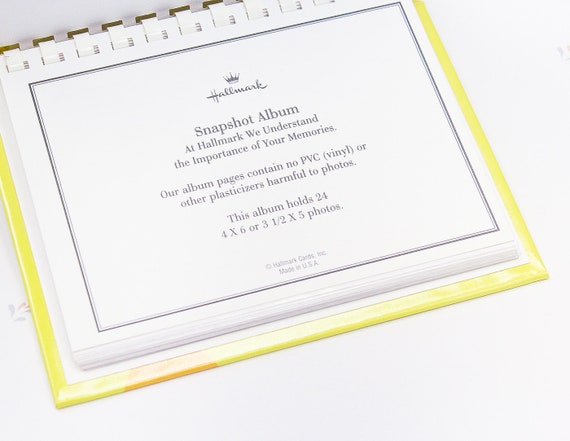 Hallmark
Snapshot Album
At Hallmark We Understand
the Importance of Your Memories.
Our album pages contain no PVC (vinyl) or
other plasticizers harmful to photos.
This album holds 24
4 X 6 or 3 1/2 X 5 photos.
© Hallmark Cards, Inc.
Made in U.S.A